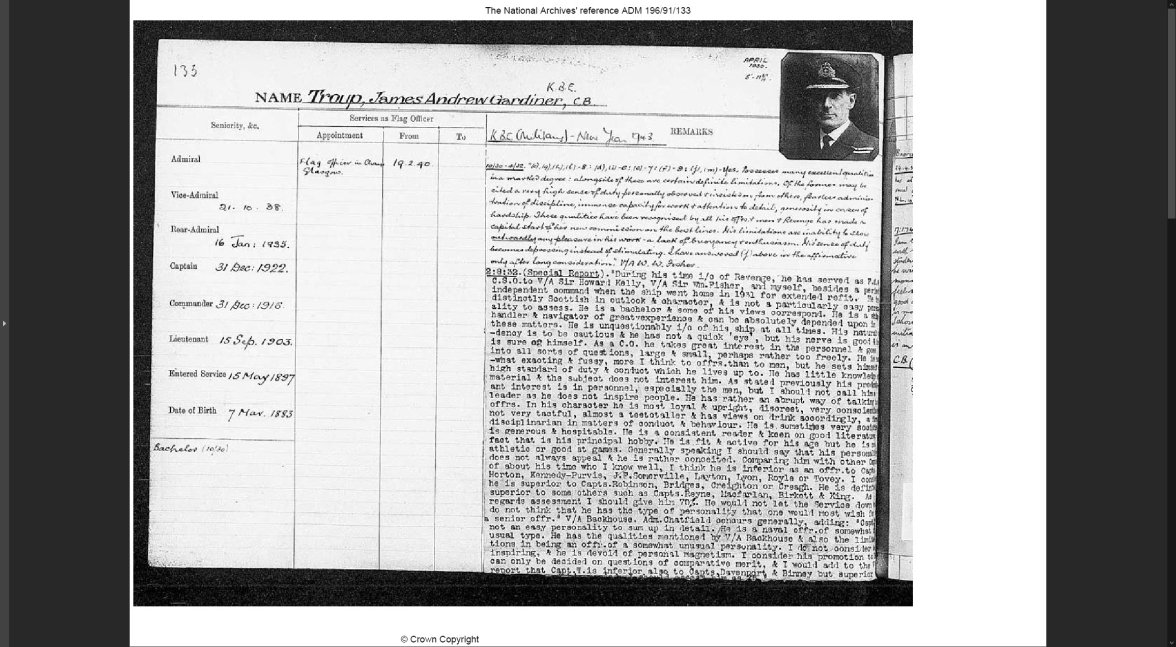 The National Archives' reference ADM 196/91/133
135
APRIL
1930.
K.B.E.
NAME Troup, James Andrew Gardiner, C.B.
Seniority, &c.
Services as Flag Officer
Appointment From To
K.B.E (Military) - New Year 1943 REMARKS
Admiral
Flag Officer in Charge 19.2.40.
Glasgow.
Vice-Admiral
21. 10. 38.
Rear-Admiral
16 Jan: 1935.
Captain 31 Dec: 1922.
Commander 31 Dec: 1916.
Lieutenant 15 Sep. 1903.
Entered Service 15 May 1897
Date of Birth 7 Mar. 1883
Bachelor (10/30)
Possesses many excellent qualities
in a marked degree: alongside of these are certain definite limitations. Of the former may be
cited a very high sense of duty personally observed & insisted on from others, fearless adminis-
tration of discipline, immense capacity for work & attention to detail, generosity in cases of
hardship. These qualities have been recognised by all his offrs. & men & Revenge has made a
capital start of her new commission on the best lines. His limitations are inability to show
outwardly any pleasure in his work - a lack of buoyancy & enthusiasm. His sense of duty
becomes depressing instead of stimulating. I have answered (f) above in the affirmative
only after long consideration. V/A W. W. Fisher.
2:9:32.(Special Report). "During his time i/c of Revenge, he has served as
C.S.O.to V/A Sir Howard Kelly, V/A Sir Wm.Fisher, and myself, besides a
independent command when the ship went home in 1931 for extended refit. He is
distinctly Scottish in outlook & character, & is not a particularly easy person-
ality to assess. He is a bachelor & some of his views correspond. He is a
handler & navigator of great experience & can be absolutely depended upon in
these matters. He is unquestionably i/c of his ship at all times. His natural
-dency is to be cautious & he has not a quick 'eye', but his nerve is good &
is sure of himself. As a C.O. he takes great interest in the personnel & goes
into all sorts of questions, large & small, perhaps rather too freely. He is
-what exacting & fussy, more I think to offrs.than to men, but he sets himself
high standard of duty & conduct which he lives up to. He has little knowledge
material & the subject does not interest him. As stated previously his predomin-
ant interest is in personnel, especially the men, but I should not call him
leader as he does not inspire people. He has rather an abrupt way of talking
offrs. In his character he is most loyal & upright, discreet, very conscien
not very tactful, almost a teetotaller & has views on drink accordingly, a
disciplinarian in matters of conduct & behaviour. He is sometimes very
is generous & hospitable. He is a consistent reader & keen on good literature
fact that is his principal hobby. He is fit & active for his age but he is
athletic or good at games. Generally speaking I should say that his personality
does not always appeal & he is rather conceited. Comparing him with other
of about his time who I know well, I think he is inferior as an offr.to Capts
Horton, Kennedy-Purvis, J.F.Somerville, Layton, Lyon, Royle or Tovey. I
he is superior to Capts.Robinson, Bridges, Creighton or Creagh. He is definitely
superior to some others such as Capts.Rayne, Macfarlan, Birkett & King. As
regards assessment I should give him VDI. He would not let the Service down
do not think that he has the type of personality that one would most wish
a senior offr." V/A Backhouse. Adm.Chatfield concurs generally, adding: "
not an easy personality to sum up in detail. He is a naval offr.of somewhat
usual type. He has the qualities mentioned by V/A Backhouse & also the limita
tions in being an offr.of a somewhat unusual personality. I do not consider
inspiring, & he is devoid of personal magnetism. I consider his promotion
can only be decided on questions of comparative merit, & I would add to the
report that Capt.T.is inferior also to Capts.Davenport, & Binney but superior
© Crown Copyright